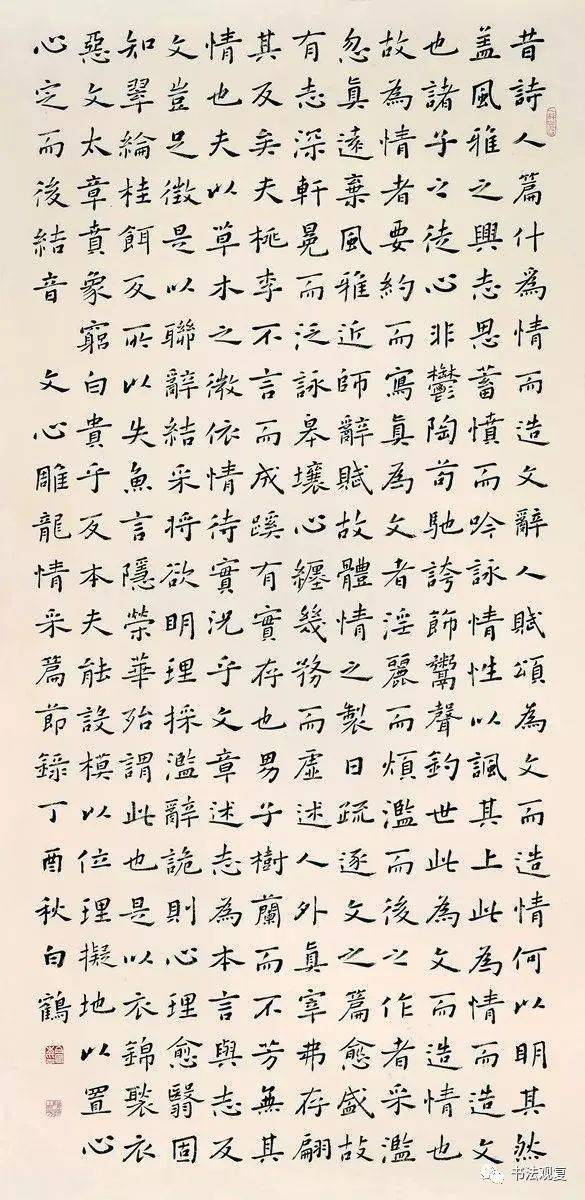 昔詩人篇什為情而造文辭人賦頌為文而造情何以明其然
盖風雅之興志思蓄憤而吟詠情性以諷其上此為情而造文
也諸子之徒心非鬱陶苟馳誇飾鬻聲釣世此為文而造情也
故為情者要約而寫眞為文者淫麗而煩濫而後之作者采濫
忽眞遠棄風雅近師辭賦故體情之製日疏逐文之篇愈盛故
有志深軒冕而泛詠皋壤心纏幾務而虛述人外眞宰弗存翩
其反矣夫桃李不言而成蹊有實存也男子樹蘭而不芳無其
情也夫以草木之微依情待實況乎文章述志為本言與志反
文豈足徵是以聯辭結采將欲明理採濫辭詭則心理愈翳固
知翠綸桂餌反所以失魚言隱榮華殆謂此也是以衣錦褧衣
惡文太章賁象窮白貴乎反本夫能設模以位理擬地以置心
心定而後結音 文心雕龍情采篇節錄丁酉秋白鶴
书法观复